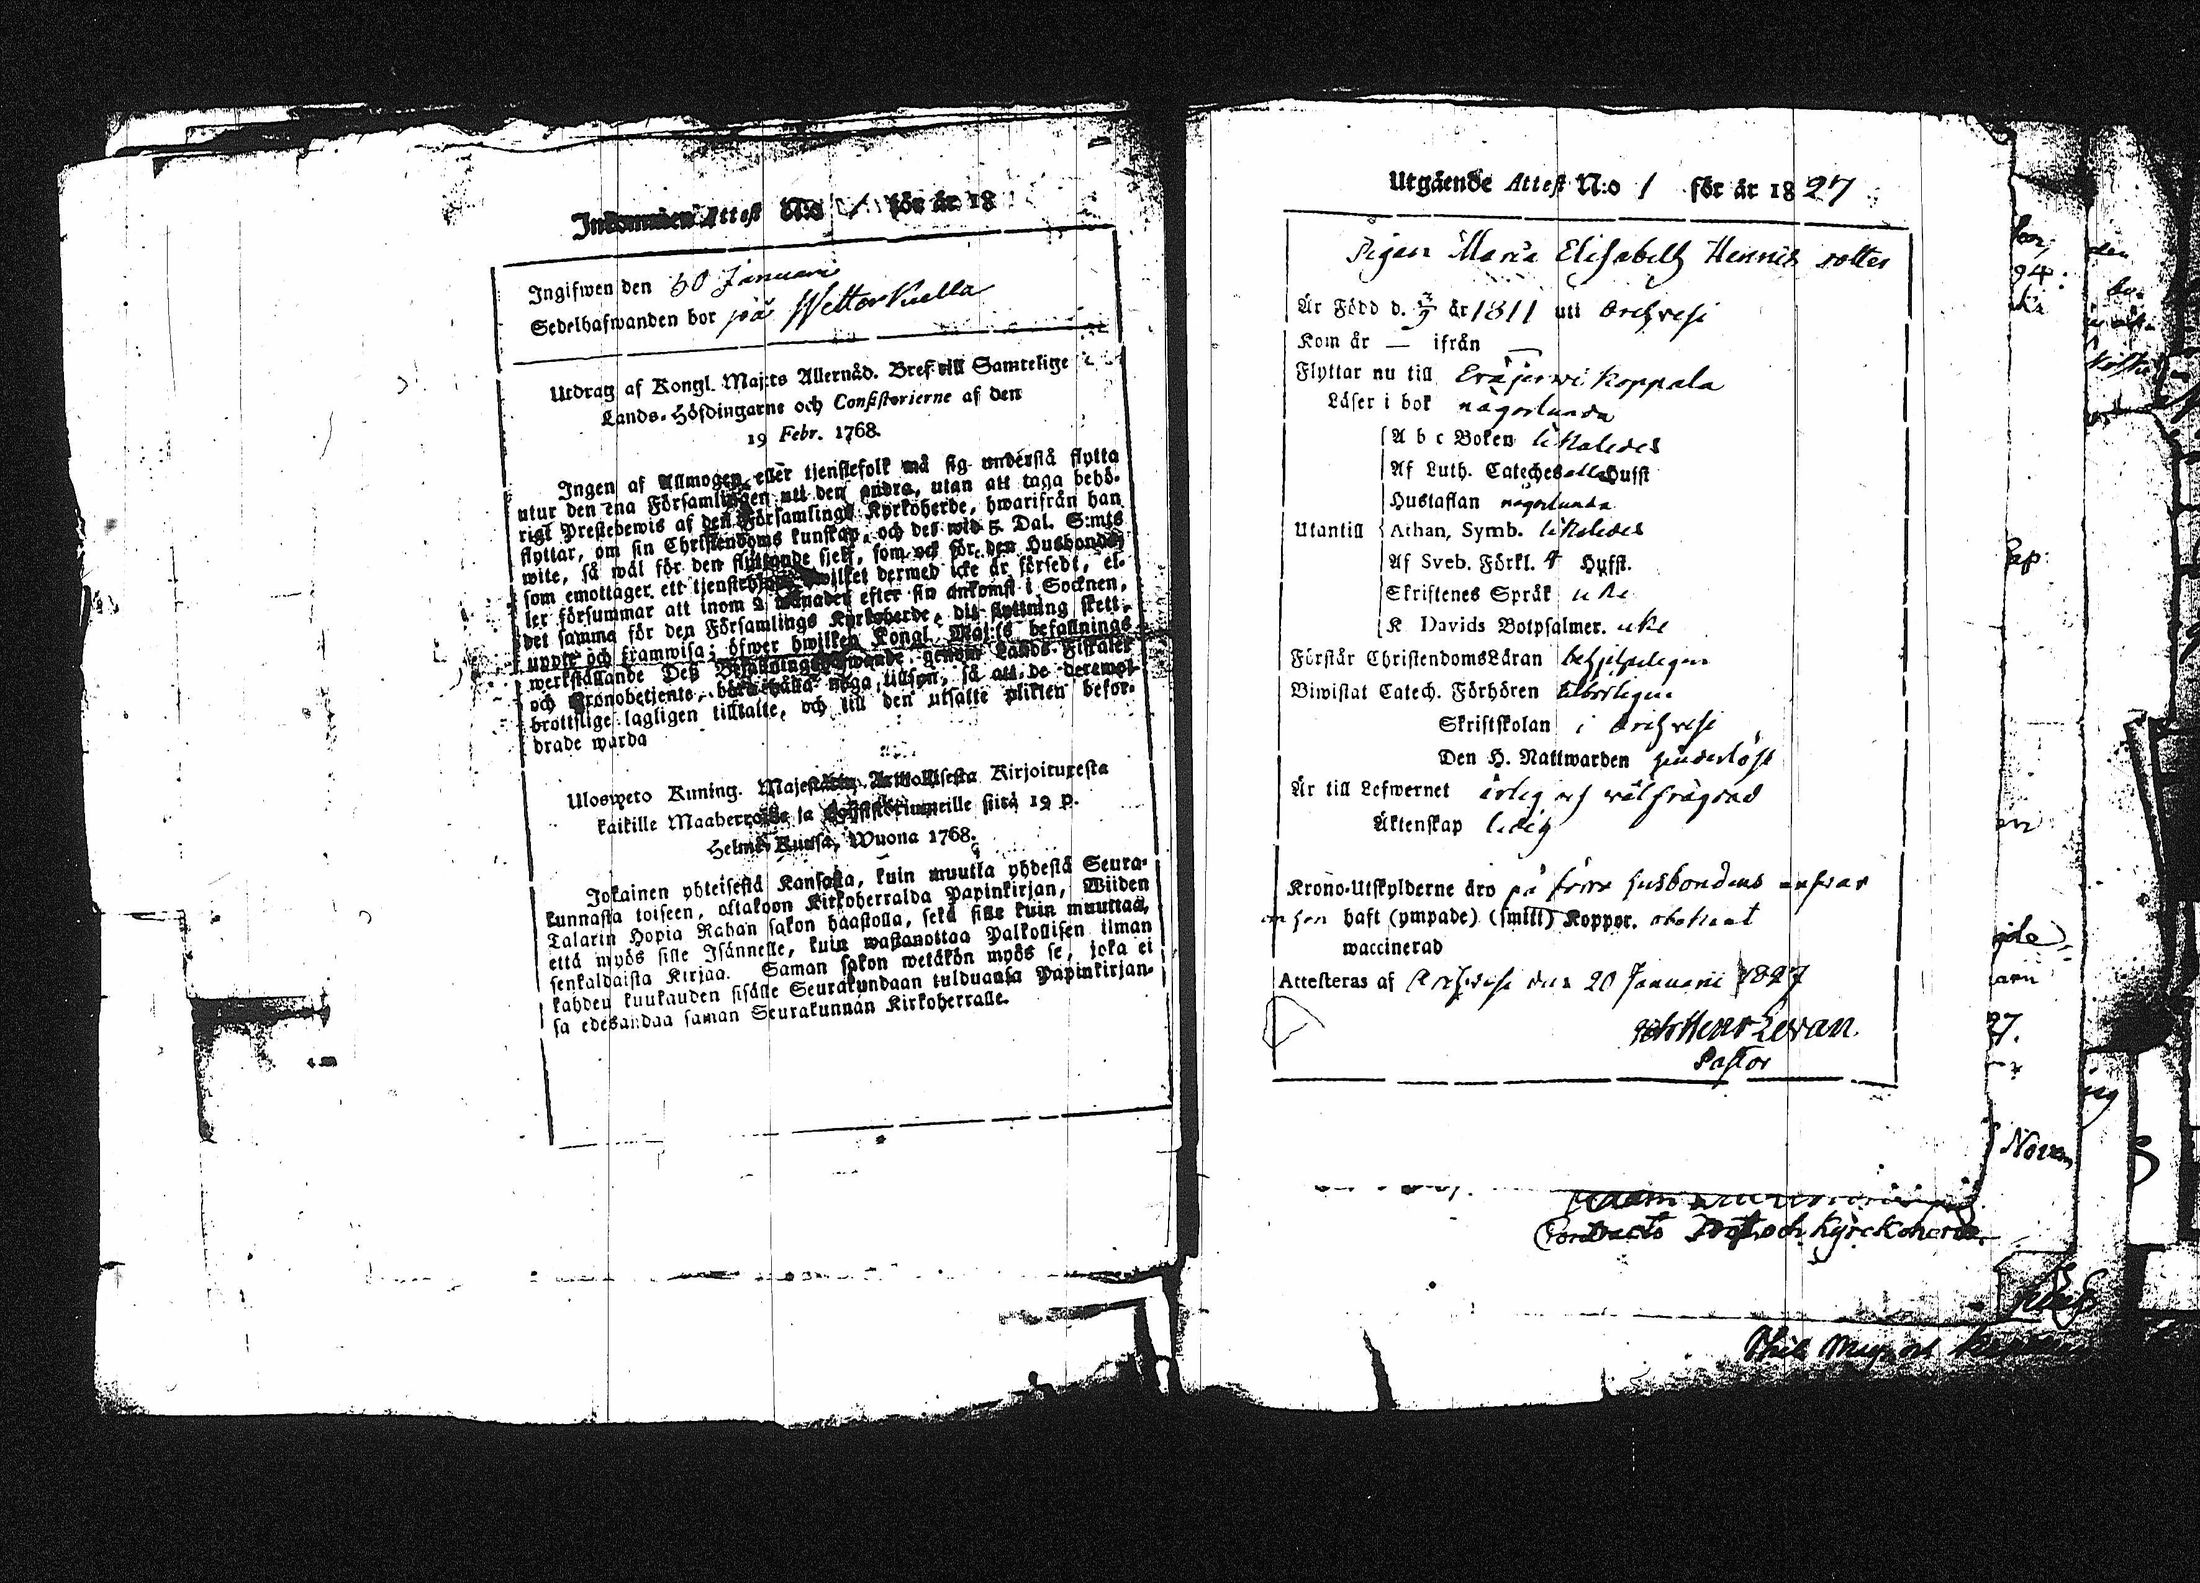 Inkommen Attest N:o 1 för år 18
Ingifwen den 30 Januari
Sedelhafwanden bor på Wetterkulla
Utdrag af Kongl. Maj:ts Allernåd. Bref till Samtelige
Lands-Höfdingarne och Consistorierne af den
19 Febr. 1768.
Ingen af Allmogen eller tjenstefolk må sig understå flytta
utur den ena Församlingen uti den andra, utan att taga behö-
rigt Prestebewis af den Församlings Kyrkoherde, hwarifrån han
flyttar, om sin Christendoms kunskap, och det wid 5 Dal. S:mts
wite, så wäl för den flyttande sjelf, som och för den Husbonden
som emottager ett tjenstehjon hwilket dermed icke är försedt, el-
ler försummar att inom 2 månader efter sin ankomst i Socknen,
det samma för den Församlings Kyrkoherde, dit flyttning skett,
uppte och framwisa; öfwer hwilken Kongl. Maj:ts befallnings
werkställande Deß Befallningshafwande genom Lands-Fiskaler
och Kronobetjente, böra hålla noga tillsyn, så att de deremot
brottslige lagligen tilltalte, och till den utsatte plikten befor-
drade warda
Ulosweto Kuning. Majestätin Armollisesta Kirjoituxesta
kaikille Maaherroille ja Consistoriumeille siitä 19 p.
Helmi Kuusa, Wuona 1768.
Jokainen yhteisestä Kansasta, kuin muutta yhdestä Seura-
kunnasta toiseen, ottakoon Kirkoherralda Papinkirjan, Wiiden
Talarin Hopia Rahan sakon haastolla, sekä sille kuin muuttaa,
että myös sille Isännelle, kuin wastanottaa Palkollisen ilman
senkaldaista Kirjaa. Saman sakon wetäkön myös se, joka ei
kahden kuukauden sisälle Seurakundaan tulduansa Papinkirjan-
sa edesandaa saman Seurakunnan Kirkoherralle.
Utgående Attest N:o 1 för år 1827
Pigan Maria Elisabeth Henrics dotter
Är Född d. 2/9 år 1811 uti Orihvesi
Kom år — ifrån —
Flyttar nu till Eräjervi Koppala
Läser i bok någorlunda
A b c Boken likaledes
Af Luth. Cateches alla Hufst
Hustaflan någorlunda
Utantill Athan. Symb. likaledes
Af Sveb. Förkl. 4 Hufst.
Skriftenes Språk icke
K Davids Botpsalmer. icke
Förstår ChristendomsLäran behjelpeligen
Biwistat Catech. Förhören tilbörligen
Skriftskolan i Orihvesi
Den H. Nattwarden hinderlöst
Är till Lefwernet ärlig och välfrägdad
Äktenskap ledig
Krono-Utskylderne äro på förra husbondens ansvar
om hon haft (ympade) (smitt) Koppor. obekant
waccinerad
Attesteras af Orihvesi den 20 Januarii 1827
Joh Henr Levan.
Pastor
Contracts Prost och Kyrckoherde